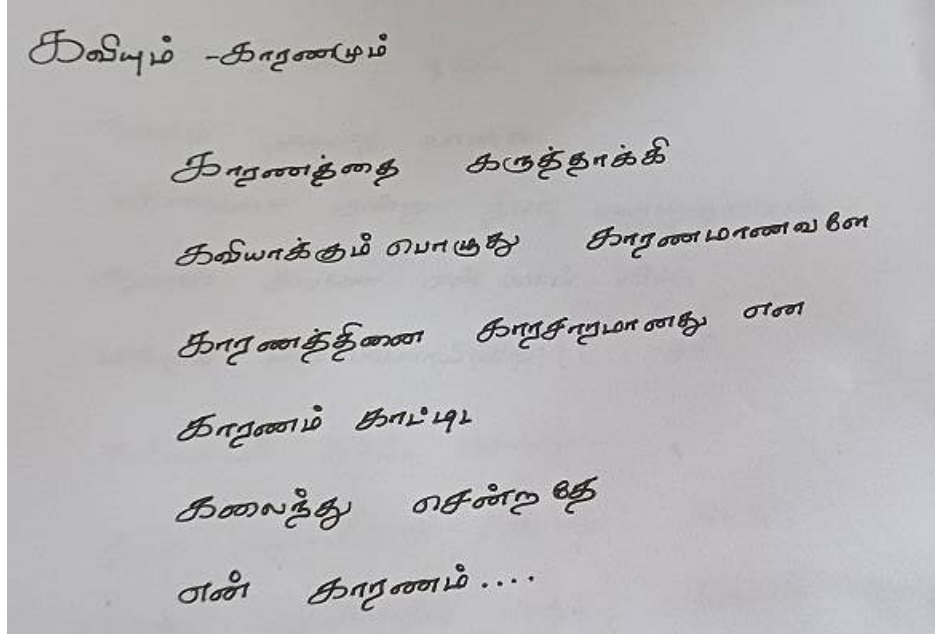 கவியும் -காரணமும்
காரணத்தை கருத்தாக்கி
கவியாக்கும் பொழுது காரணமாணவளே
காரணத்தினை காரசாரமானது என
காரணம் காட்டிட
கலைந்து சென்றதே
என் காரணம்....